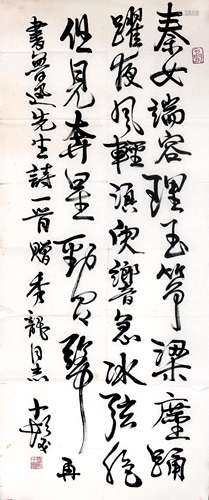 秦女端容理玉箏梁塵踊
躍夜風輕須臾響急冰弦絕
但見奔星勁有聲 再
書魯迅先生詩一首贈秀龍同志